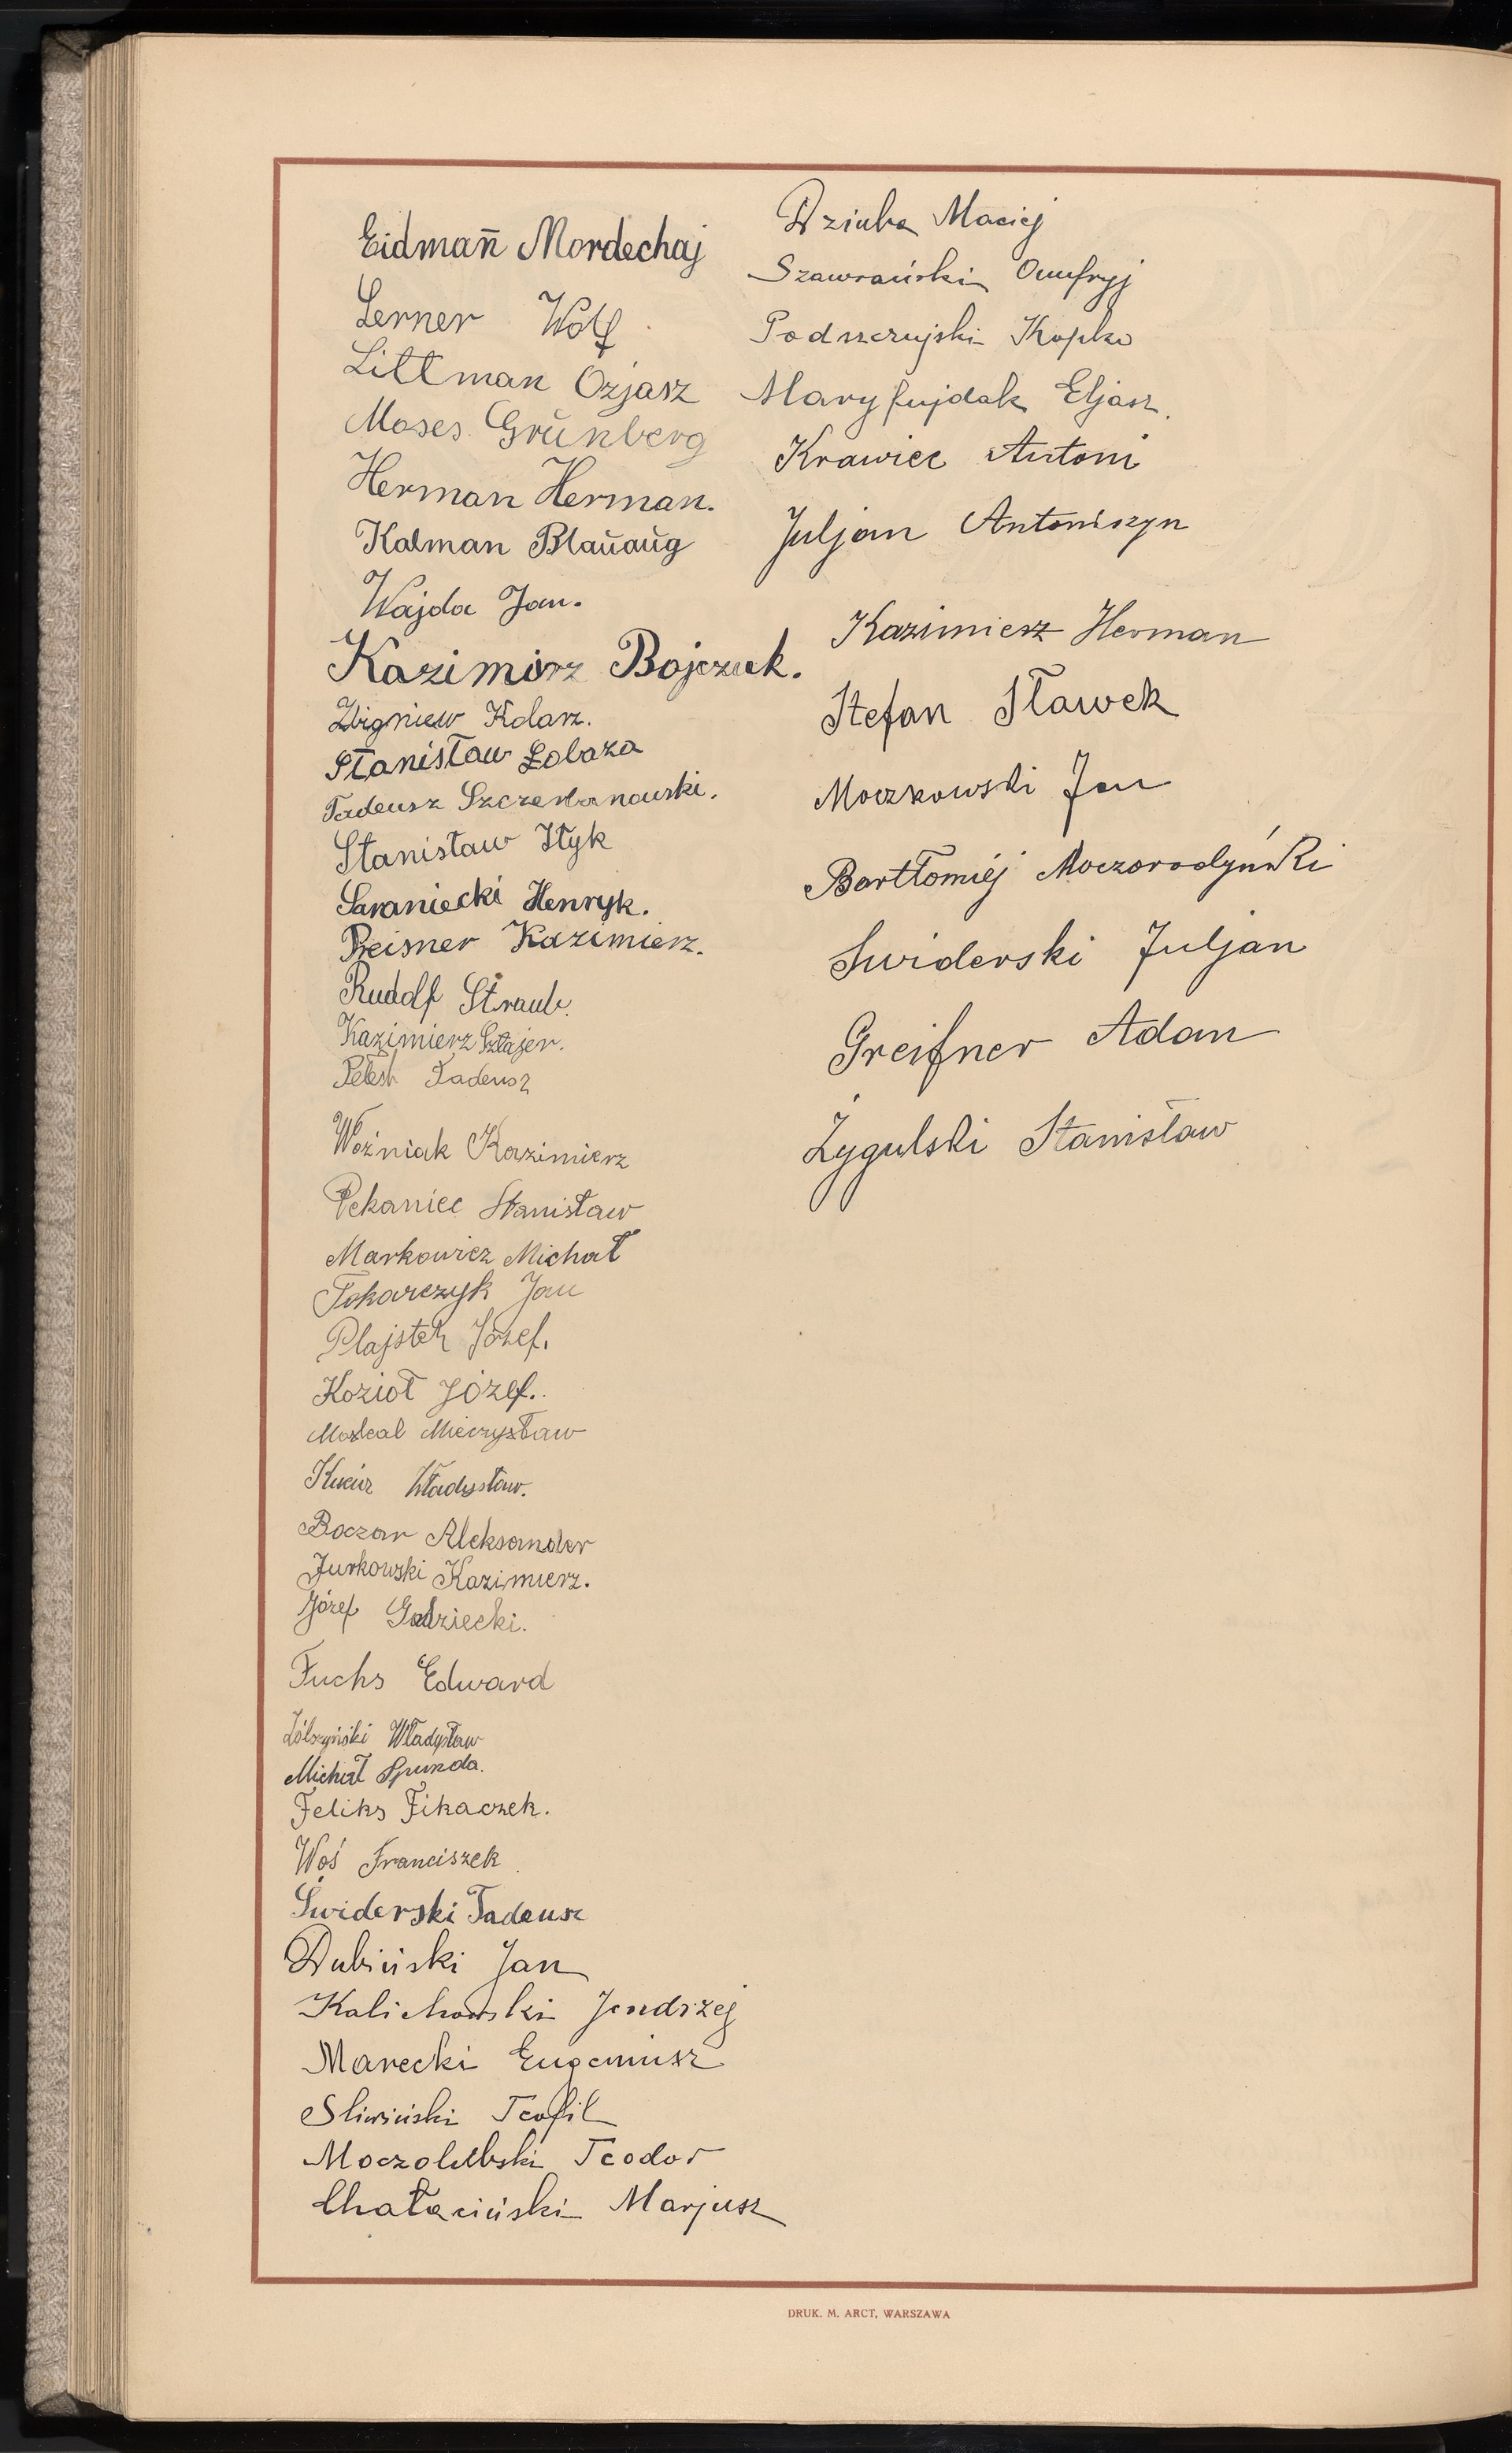 Eidmañ Mordechaj
Lerner Wolf
Littman Ozjasz
Moses Grünberg
Herman Herman.
Kalman Blaŭaŭg
Wajda Jan.
Kazimierz Bojczuk.
Zbigniew Kolarz.
Stanisław Łobaza
Tadeusz
Stanisław Styk
Saraniecki Henryk.
Preisner Kazimierz.
Rudolf Straub.
Kazimierz Sztajer.
Tadeusz
Woźniak Kazimierz
Pekaniec Stanisław
Markowicz Michał
Tokarczyk Jan
Plajstek Józef.
Kozioł Józef.
Mieczysław
Władysław.
Boczar Aleksander
Jurkowski Kazimierz.
Józef
Fuchs Edward
Władysław
Michał Spunda.
Feliks Fikaczek.
Woś Franciszek
Świderski Tadeusz
Dubiński Jan
Kalichowski Jendrzej
Marecki Eugeniusz
Sliwiński Teofil
Teodor
Chałaciński Marjusz
Dziuba Maciej
Szawrański Onufryj
Kopko
Eljasz.
Krawiec Antoni
Juljan Antoniszyn
Kazimierz Herman
Stefan Sławek
Moczkowski Jan
Bartłomiej Moczorodyński
Swiderski Juljan
Greifner Adam
Żygulski Stanisław
DRUK. M. ARCT, WARSZAWA